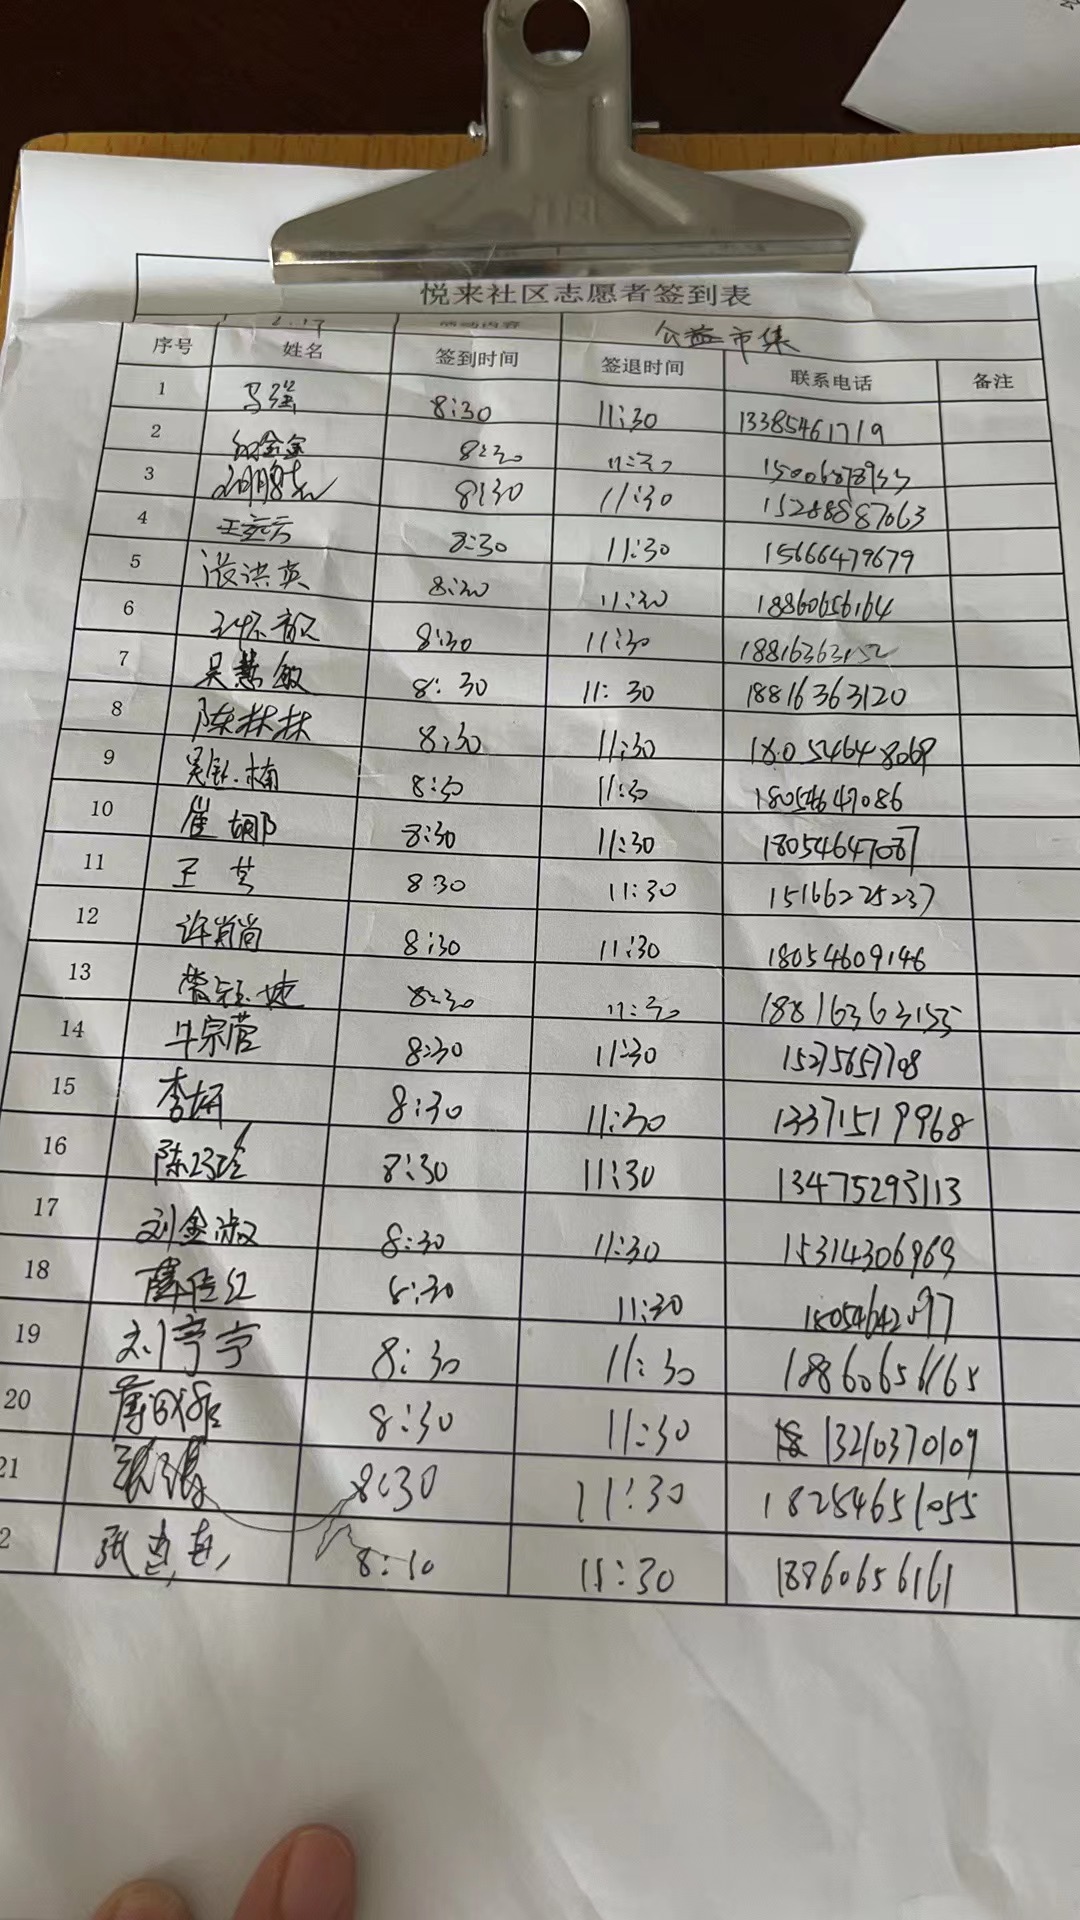 悦来社区志愿者签到表
活动内容 公益市集
序号 姓名 签到时间 签退时间 联系电话 备注
1 马强 8:30 11:30 13385461719
2 8:30 11:30
3 8:30 11:30 15288887063
4 8:30 11:30 15666479679
5 洪英 8:30 11:30 18860656164
6 8:30 11:30
7 吴慧敏 8:30 11:30 18816363120
8 陈林林 8:30 11:30
9 8:30 11:30 18054647086
10 崔娜 8:30 11:30 18054647087
11 王艺 8:30 11:30 15166225237
12 许肖尚 8:30 11:30 18054609146
13 8:30 11:30 18816363155
14 牛宗营 8:30 11:30 15275657708
15 李妍 8:30 11:30 13371519968
16 8:30 11:30 13475293113
17 刘金淑 8:30 11:30 15314306969
18 8:30 11:30
19 刘亭亭 8:30 11:30 18860656165
20 8:30 11:30 13210370109
21 8:30 11:30 18254651055
2 张 8:30 11:30 18860656161